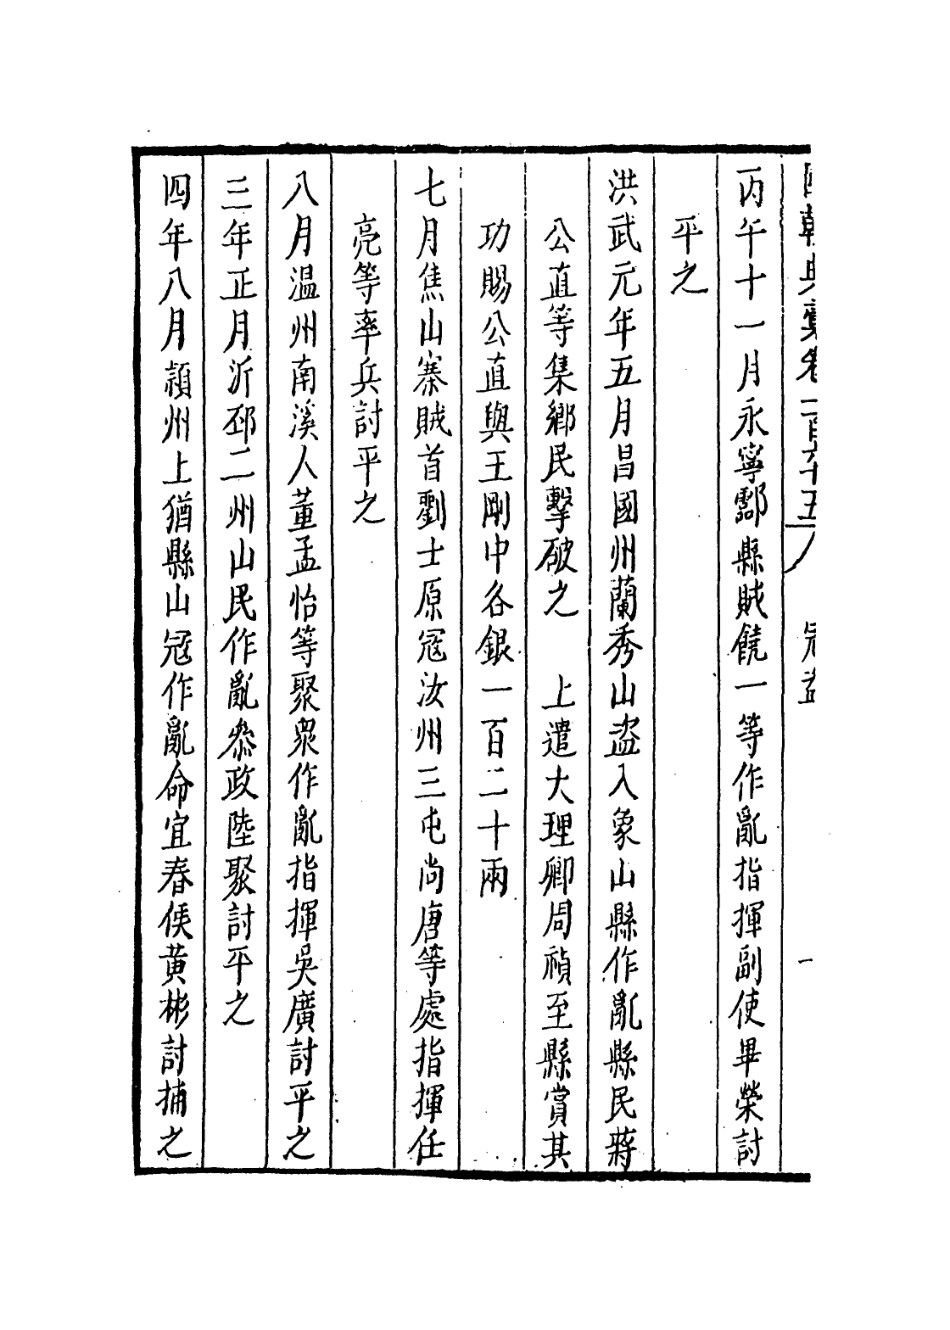 國朝典彙卷一百六十五 寇盗 一
丙午十一月永寧酃縣賊饒一等作亂指揮副使畢榮討
平之
洪武元年五月昌國州蘭秀山盗入象山縣作亂縣民蔣
公直等集鄉民擊破之　上遣大理卿周禎至縣賞其
功賜公直與王剛中各銀一百二十兩
七月焦山寨賊首劉士原寇汝州三屯尚唐等處指揮任
亮等率兵討平之
八月温州南溪人董孟怡等聚衆作亂指揮吳廣討平之
三年正月沂邳二州山民作亂叅政陸聚討平之
四年八月頴州上猶縣山寇作亂命宜春侯黄彬討捕之